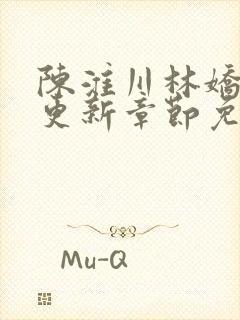 陳淮川林嬌
更新章節免
Mu-Q